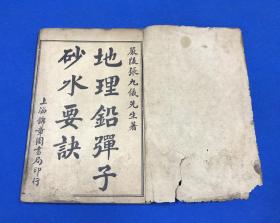 嚴陵張九儀先生著
地理鉛彈子
砂水要訣
上海錦章圖書局印行